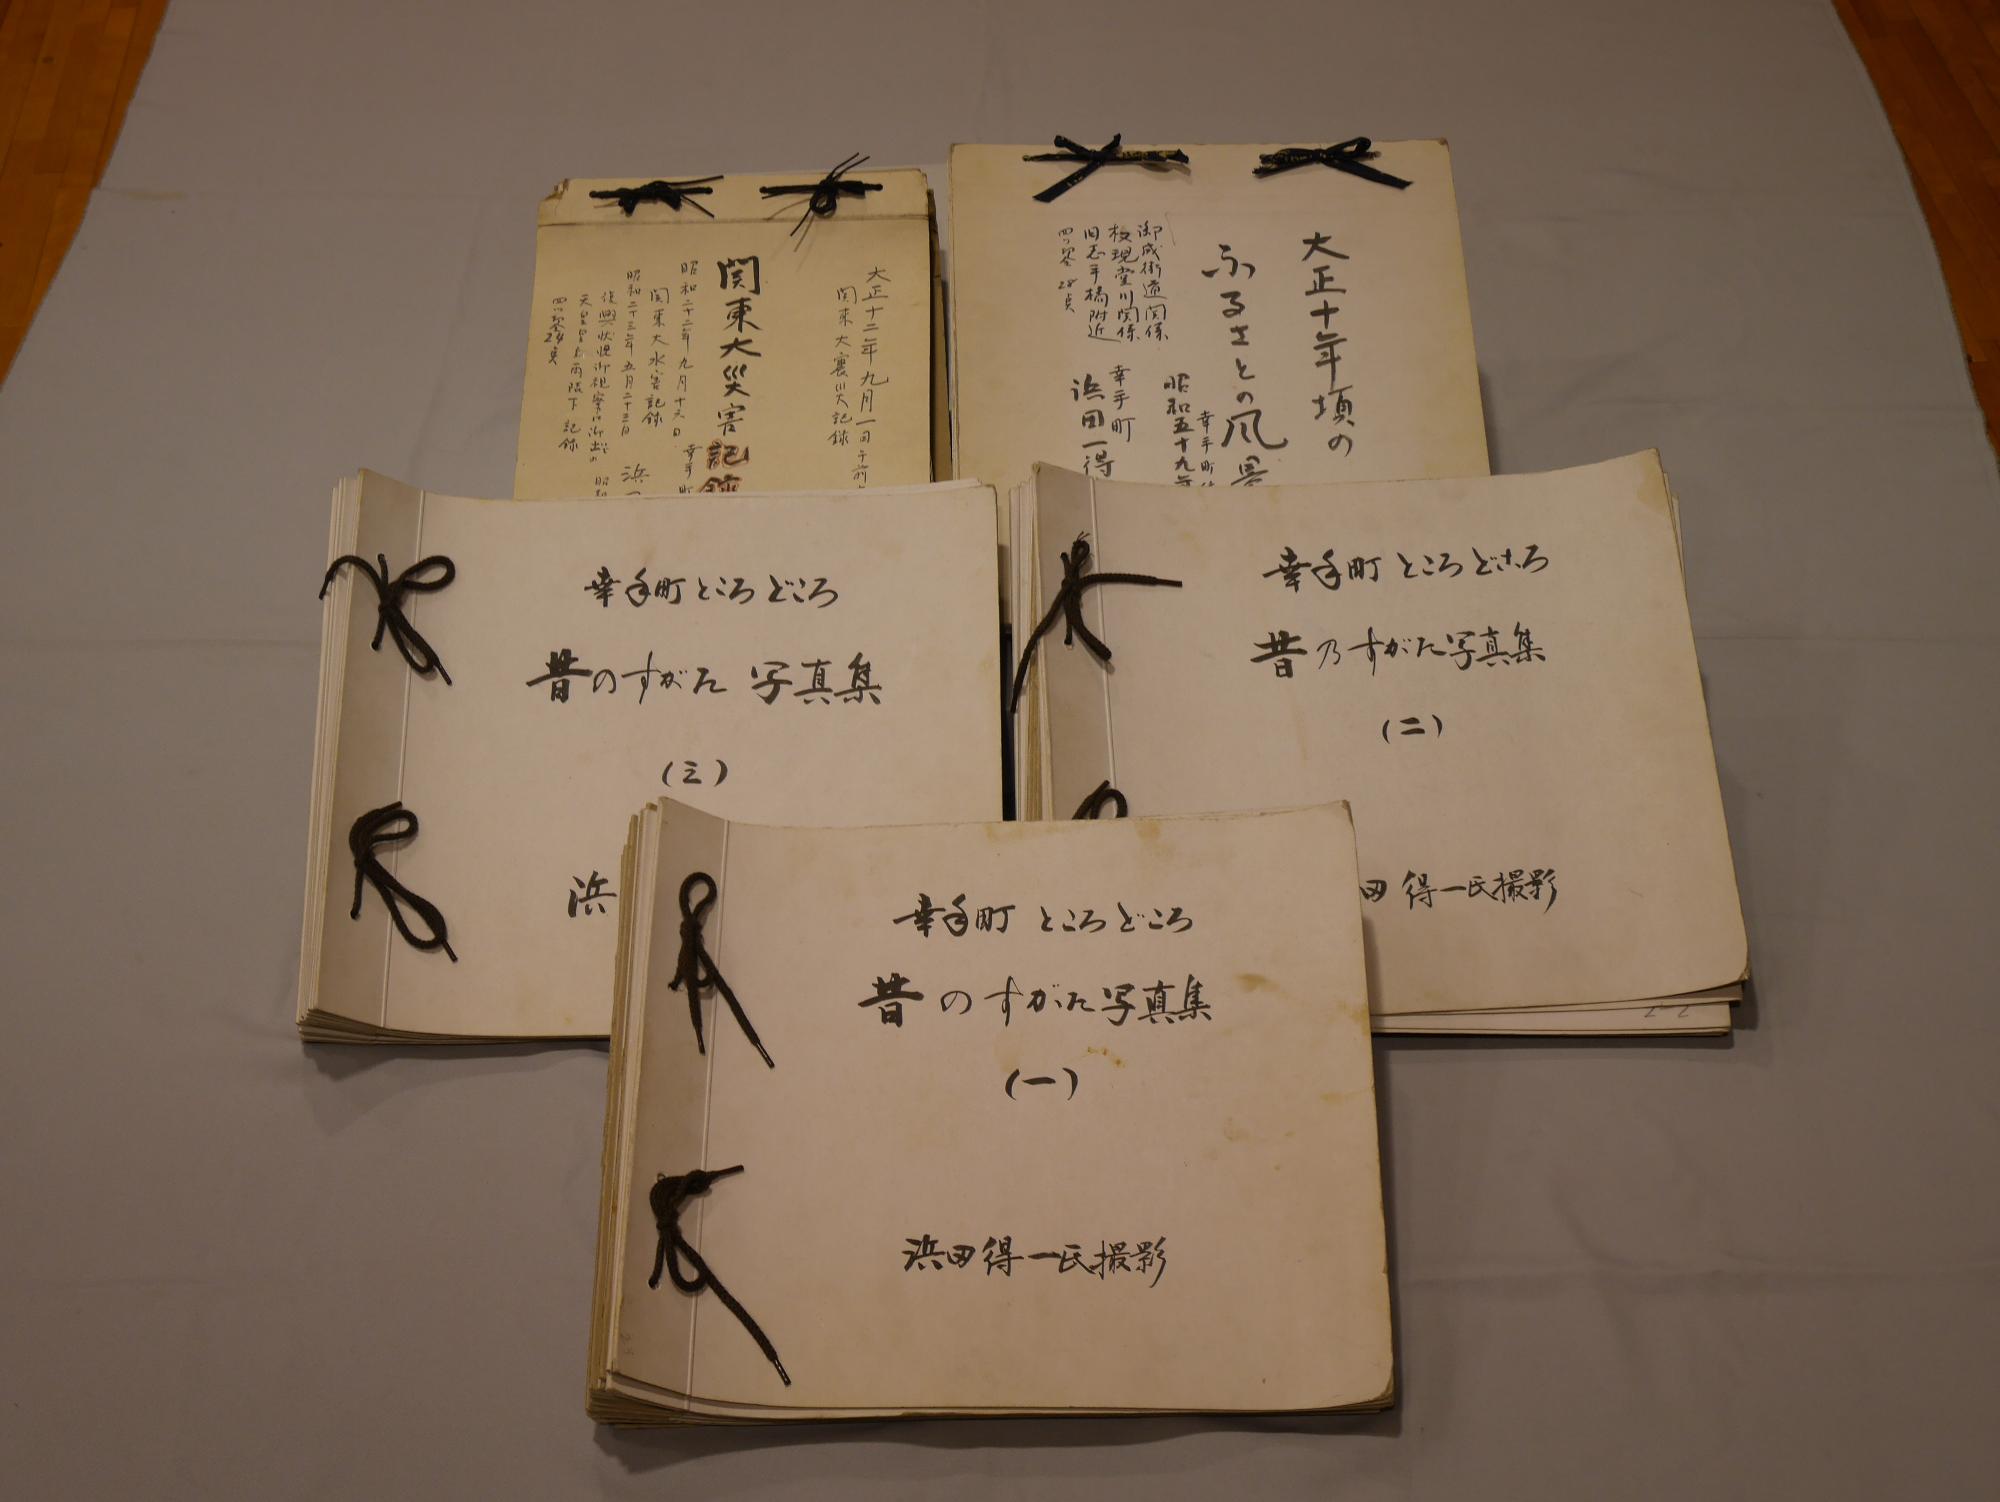 大正十二年九月一日午前
関東大震災大記録
関東大災害記録
昭和二十二年九月十六日
関東大水害記録
昭和二十三年五月二十三日
復興状況御視察に御出の
天皇皇后両陛下記録
四ツ切 24頁
幸手町
浜
大正十年頃の
ふるさとの風景
御成街道関係
権現堂川関係
旧志手橋附近
四ツ切 28頁
幸手町
昭和五十九年
幸手町
浜田一得
幸手町ところどころ
昔のすがた 写真集
(三)
浜
幸手町ところどころ
昔乃すがた写真集
(二)
田得一氏撮影
幸手町ところどころ
昔のすがた写真集
(一)
浜田得一氏撮影